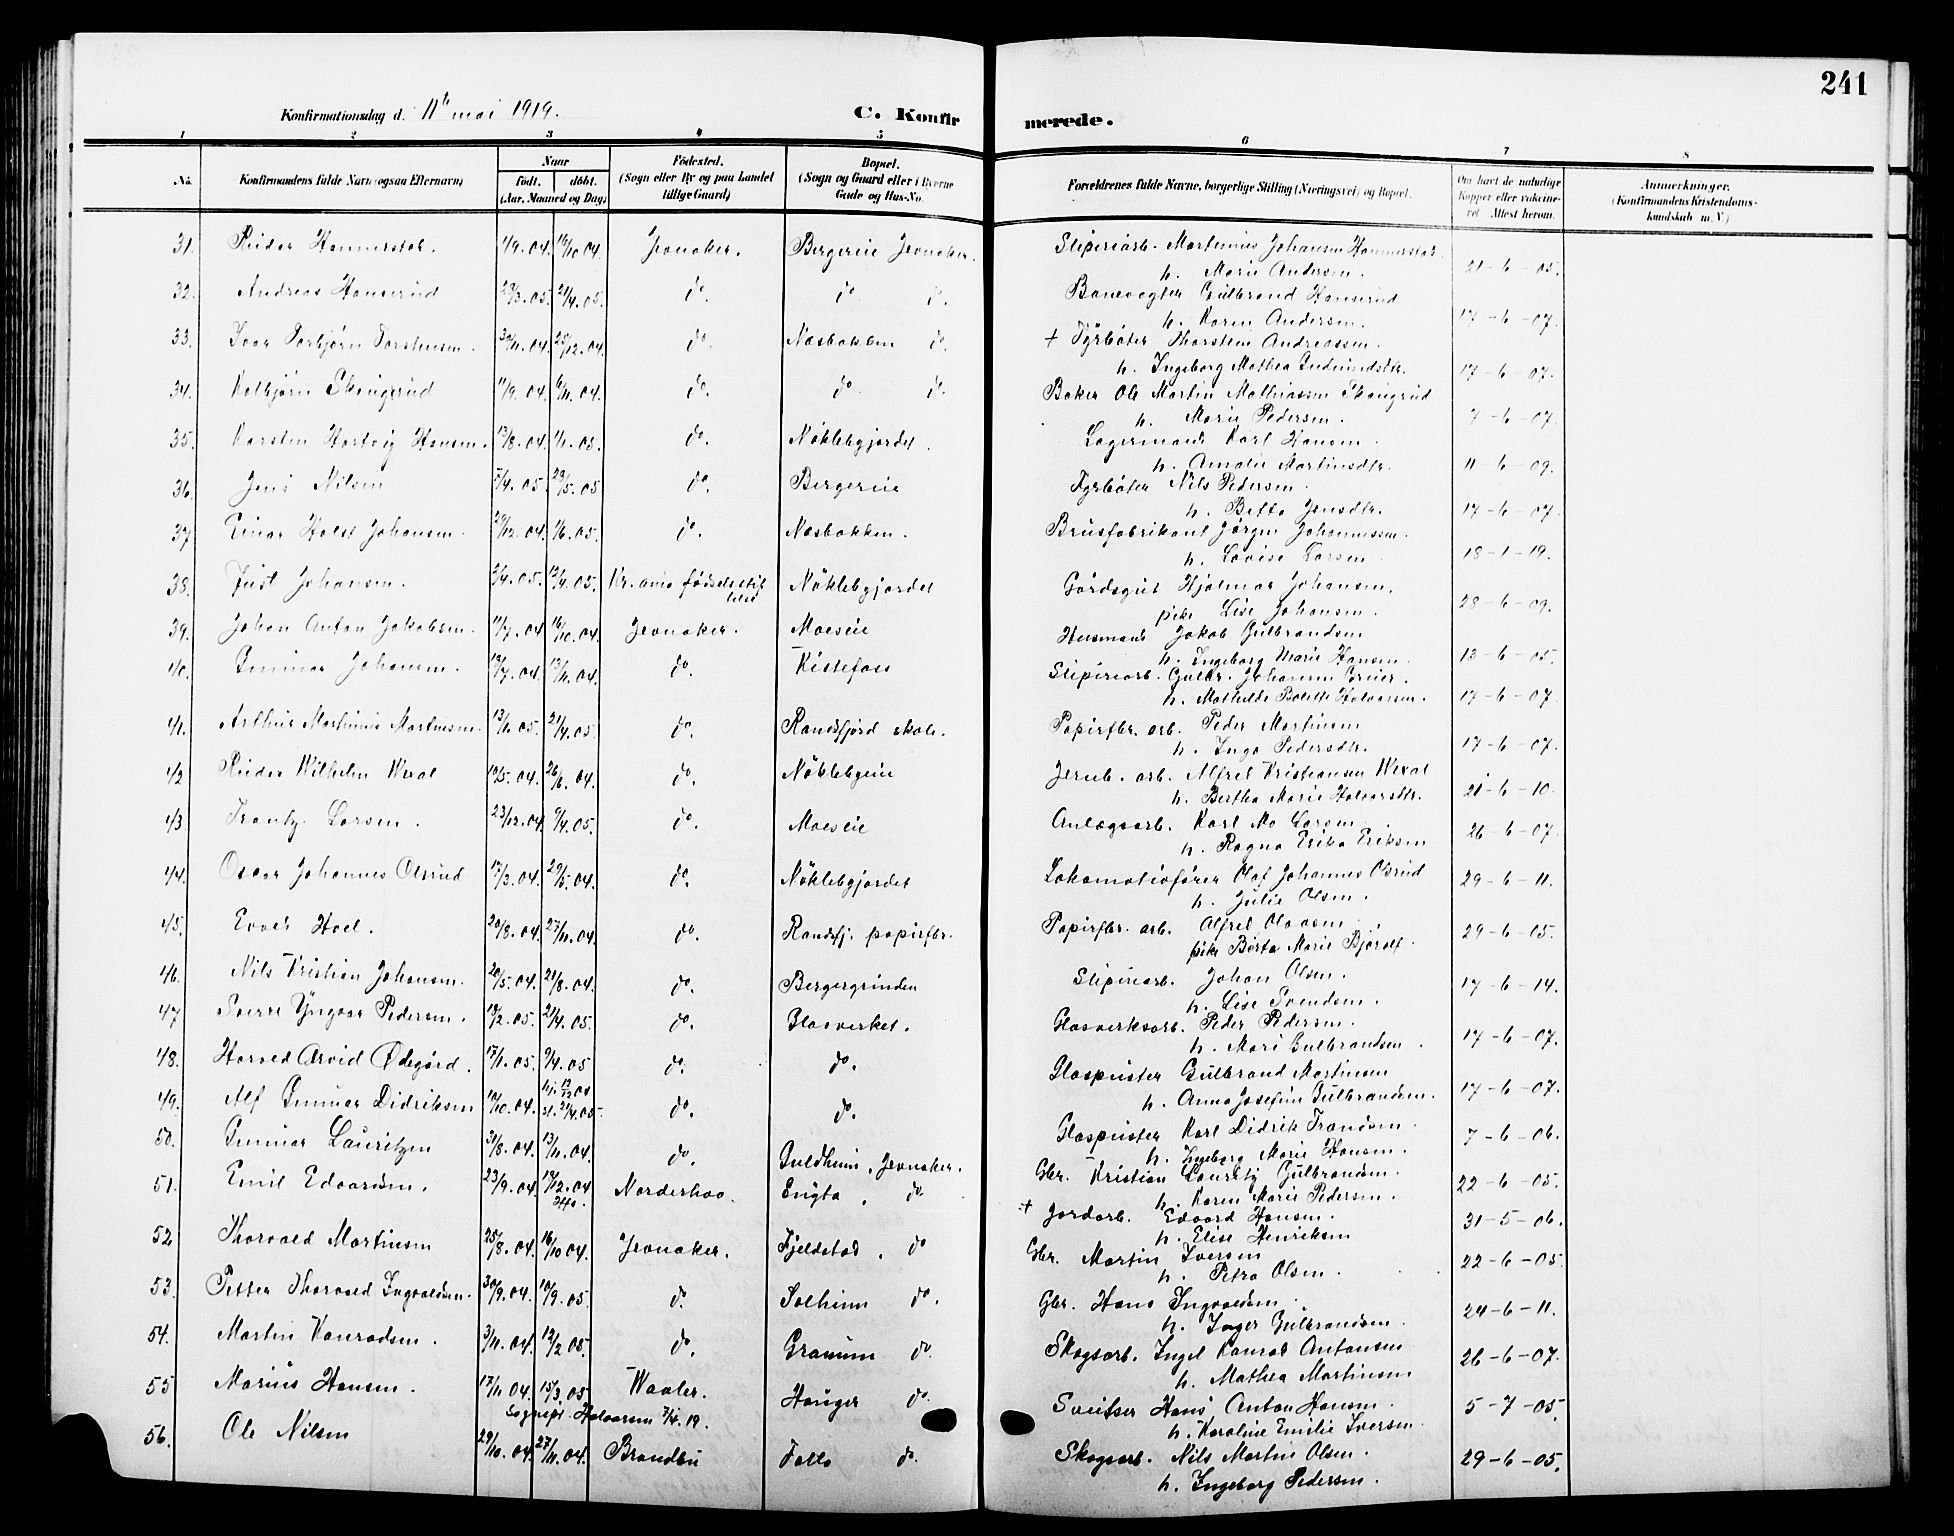 241
Konfirmationsdag d. 11te mai 1919. C. Konfirmerede.
1 2 3 4 5 6 7 8
No. Konfirmandens fulde Navn (ogsaa Efternavn) Naar født. døbt. (Aar, Maaned og Dag) Fødested. (Sogn eller By og paa Landet tillige Gaard) Bopæl. (Sogn og Gaard eller i Byerne Gade og Hus-No. Forældrenes fulde Navne, borgerlige Stilling (Næringsvei) og Bopæl. Om havt de naturlige Kopper eller vaccineret. Attest herom. Anmerkninger. (Konfirmandens Kristendomskundskab m. V.)
31. Reidar Hammerstad. 1/9.04. 16/10 04. Jevnaker. Bergereie Jevnaker. Sliperiarb. Martinius Johansen Hammerstad. 21-6-05.
h. Marie Andersen.
32. Andreas Hanserud 29/3.05. 24/4.05. do. do do. Banevogter Gulbrand Hanserud 17-6-07.
h. Karen Andersen.
33. Ivar Torbjørn Torstensen. 30/11.04. 25/12.04. do. Næsbakken do. + Fyrbøter Thorsten Andreassen. 17-6-07.
h. Ingeborg Mathea Gudmundsdtr.
34. Kolbjørn Skougrud 11/9.04. 6/11.04. do. do. do. Baker Ole Martin Mathiassen Skougrud 7-6-07.
h. Marie Pedersen.
35. Karsten Hartvig Hansen. 13/8.04. 1/1.05. do. Nøklebgjordet. Lagermand Karl Hansen. 11-6-09.
h. Amalie Martinsdtr.
36. Jens Nilsen 5/4.05. 23/5.05 do. Bergereie Fyrbøter Nils Pedersen. 17-6-07.
h. Betta Jensdtr.
37. Einar Holst Johansen. 29/12.04. 1/6.05. do. Næsbakken. Brusfabrikant Jørgen Johannessen. 18-1-19.
h. Lovise Larsen.
38. Just Johansen. 2/4.05. 13/4.05. Kr.ania fødselsstiftelse Nøklebgjordet Gårdsgut Hjalmar Johansen. 28-6-09.
pike Lise Johansen.
39. Johan Anton Jakobsen. 11/7.04 16/10.04. Jevnaker. Moeseie Husmand Jakob Gulbrandsen 13-6-05.
h. Ingeborg Marie Hansen.
40. Gunnar Johansen. 12/7.04. 13/11.04. do. Kistefoss Sliperiarb. Gulbr. Johansen Greier. 17-6-07.
h. Mathilde Bolette Halvorsen.
41. Arthur Martinius Martinsen. 13/1.05. 21/4.05. do. Randsfjord skole. Papirfbr. arb. Peder Martinsen 17-6-07.
h. Inga Pedersdtr.
42 Reidar Wilhelm Wexal 10/5.04. 26/6.04. do. Nøklebyeie Jernb. arb. Alfred Kristiansen Wexal 21-6-10.
h. Bertha Marie Halvorsdtr.
43 Frantz Larsen. 23/12.04. 9/4.05. do. Moeseie Anlægsarb. Karl Mo Larsen. 26-6-07.
h. Ragna Erika Eriksen
44. Oscar Johannes Olsrud 17/3.04. 29/5.04. do. Nøklebgjordet Lokomotivfører Olaf Johannes Olsrud 29-6-11.
h. Julie Olsen.
45. Evald Hoel. 20/8.04. 27/11.04. do. Randsfj. papirfbr. Papirfbr. arb. Alfred Olavsen. 29-6-05.
pike Berta Marie
46. Nils Kristian Johansen. 20/5.04. 21/8.04. do. Bergergrinden Sliperiarb. Johan Olsen. 17-6-14.
h. Lise Svendsen.
47 Sverre Yngvar Pedersen. 18/2.05. 21/4.05. do. Glasverket. Glasverksarb. Peder Pedersen. 17-6-07.
h. Mari Gulbrandsen.
48. Harald Arvid Ødegård. 17/1.05. 9/4.05 do. do. Glaspuster Gulbrand Martinsen 17-6-07.
h. Anna Josefine Gulbrandsen.
49. Alf Gunnar Didriksen 10/10.04. hj. 12/12 04 st. 21/4.05. do. do. Glaspuster Karl Didrik Transen. 7-6-06.
h. Ingeborg Marie Hansen.
50. Gunnar Lauritzen 31/8.04. 13/11.04. do. Guldheim, Jevnaker. Gbr. Kristian Lauritz Gulbrandsen. 22-6-05.
h. Karen Marie Pedersen.
51. Emil Edvardsen. 23/9.04. 17/12.04 Norderhov. Engta, do + Jordarb. Edvard Hansen. 31-5-06.
h. Elise Henriksen
52 Thorvald Martinsen 25/8.04. 16/10 04. Jevnaker. Fjeldstad, do Gbr. Martin Iversen 22-6-05
h. Petra Olsen.
53. Petter Thorvald Ingvaldsen. 30/9.04. 10/9.05. do. Solheim do. Gbr. Hans Ingvaldsen. 24-6-11.
h. Inger Gulbrandsen.
54. Martin Konradsen. 3/11.04. 12/2 05. do. Granum do. Skogsarb. Ingel Konrad Antonsen 26-6-07.
h. Mathea Martinsen
55 Marius Hansen. 17/11 04. 15/3.05 Waaler. Hauger do. Sveitser Hans Anton Hansen. 5-7-05.
Sognepr. Halvorsen 7/4.19. h. Karoline Emilie Iversen.
56. Ole Nilsen 29/10.04. 27/11.04. Brandbu Falla do. Skogsarb. Nils Martin Olsen. 29-6-05.
h. Ingeborg Pedersen.